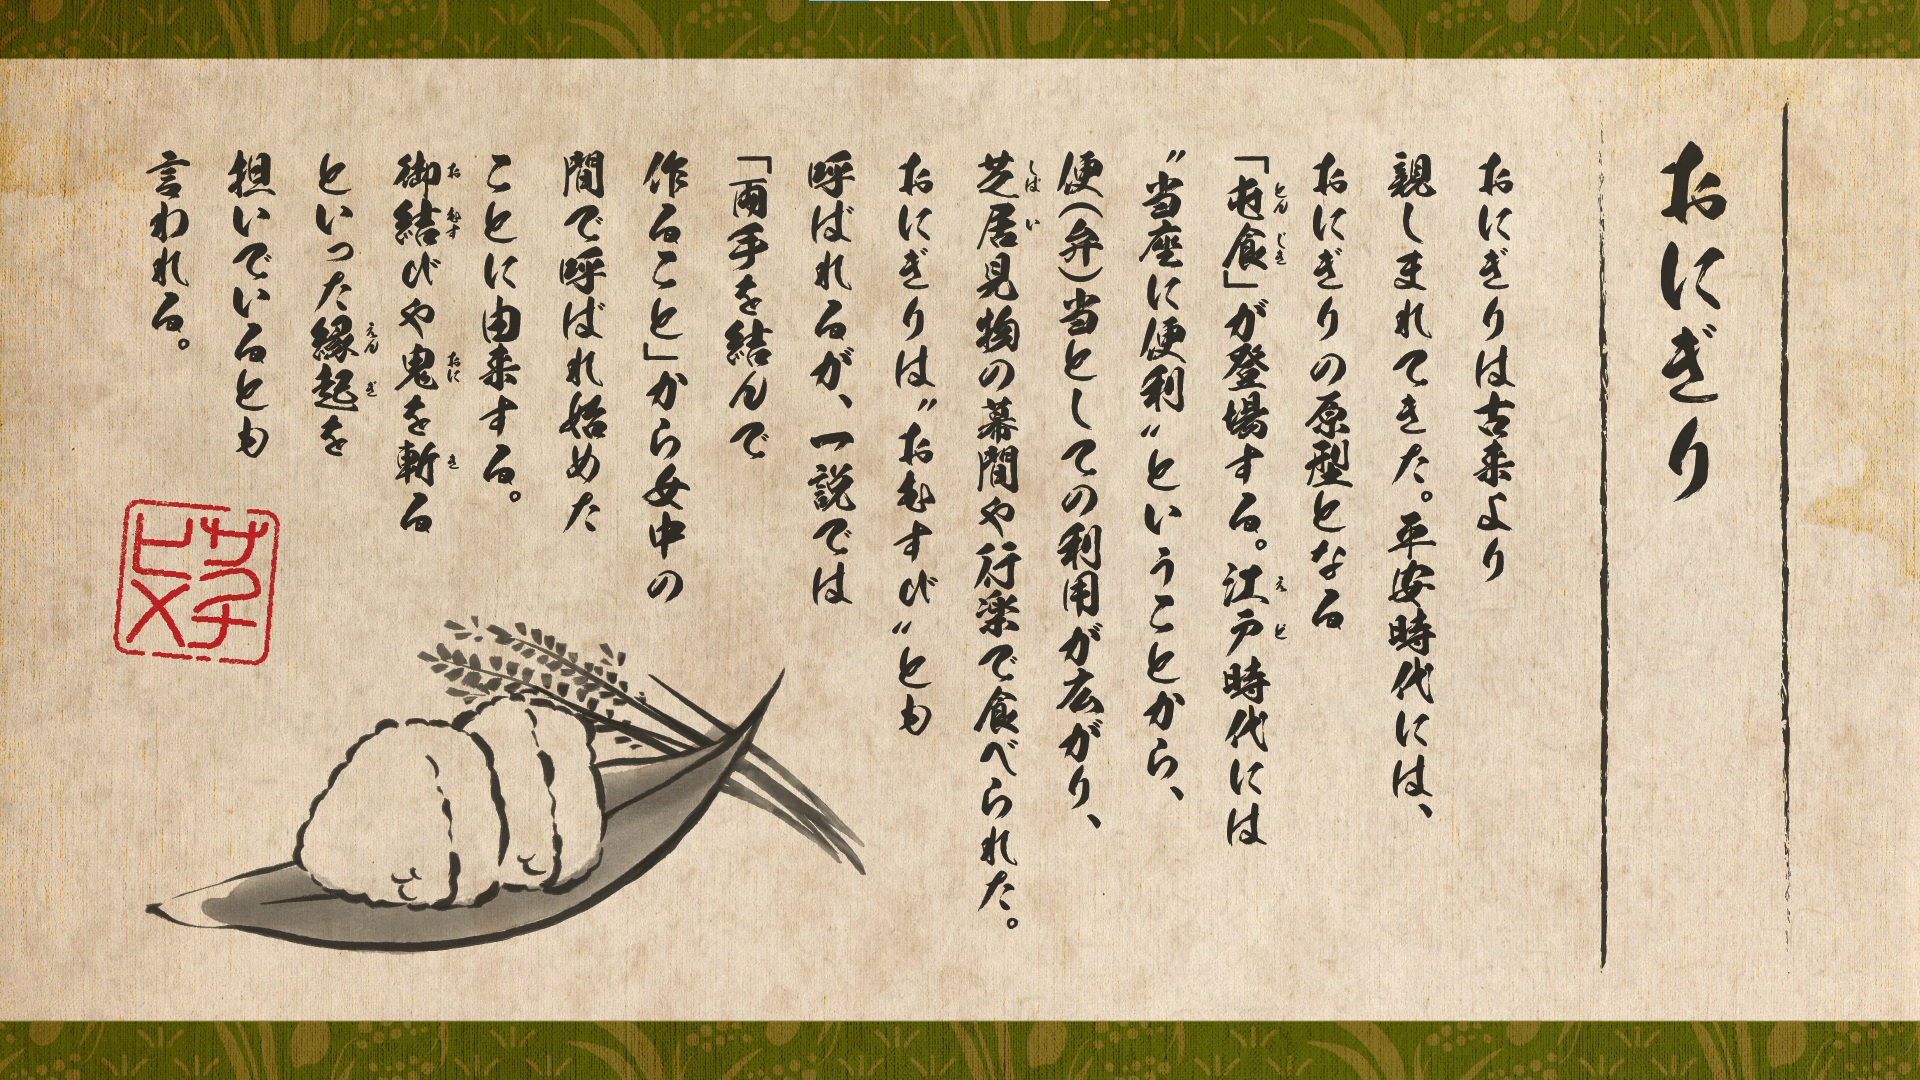 おにぎり
おにぎりは古来より
親しまれてきた。平安時代には、
おにぎりの原型となる
「屯食」が登場する。江戸時代には
〝当座に便利〟ということから、
便(弁)当としての利用が広がり、
芝居見物の幕間や行楽で食べられた。
おにぎりは〝おむすび〟とも
呼ばれるが、一説では
「両手を結んで
作ること」から女中の
間で呼ばれ始めた
ことに由来する。
御結びや鬼を斬る
といった縁起を
担いでいるとも
言われる。
サクナヒメ